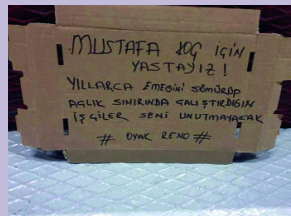 MUSTAFA KOÇ İÇİN
YASTAYIZ!
YILLARCA EMEĞİNİ SÖMÜRÜP
AÇLIK SINIRINDA ÇALIŞTIRDIĞIN
İŞÇİLER SENİ UNUTMAYACAK
# OYAK RENO #